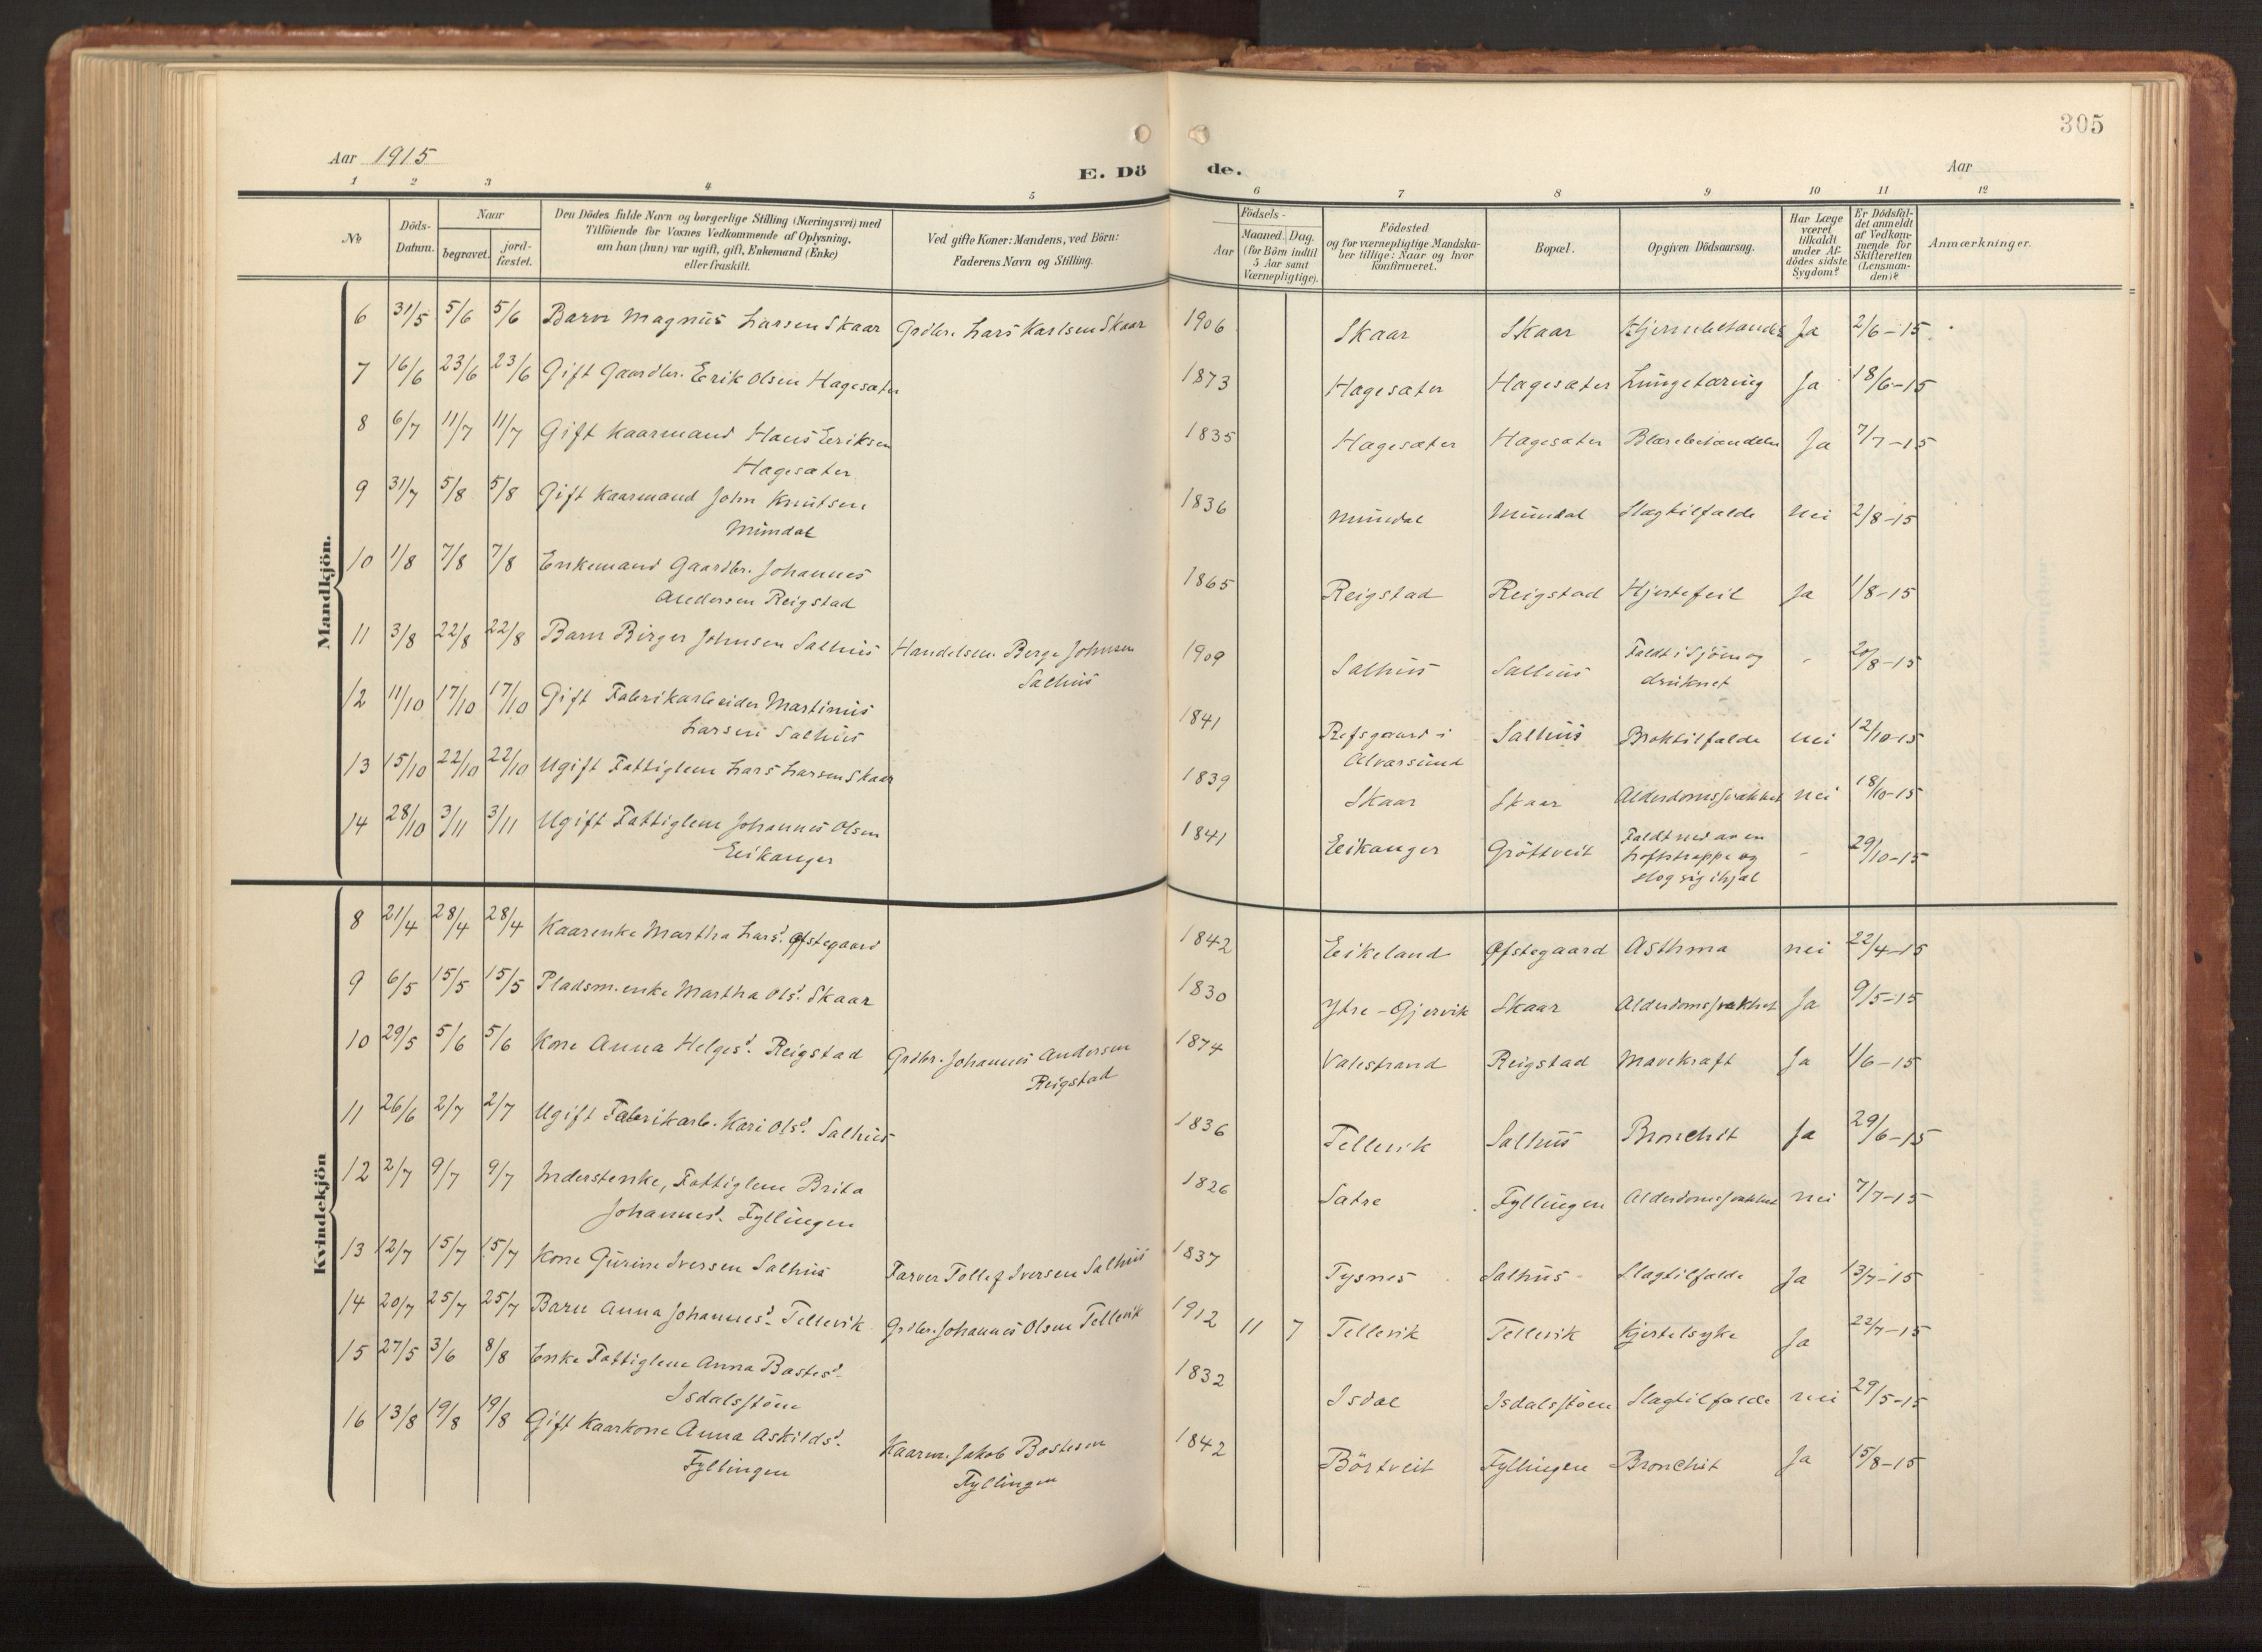 305
Aar 1915
E. Dö de.
Aar
1 2 3 4 5 6 7 8 9 10 11 12
No
Döds-Datum.
Naar
begravet.
jord-fæstet.
Den Dödes fulde Navn og borgerlige Stilling (Næringsvei) med
Tilföiende for Voxnes Vedkommende af Oplysning,
om han (hun) var ugift, gift, Enkemand (Enke)
eller fraskilt.
Ved gifte Koner: Mandens, ved Börn:
Faderens Navn og Stilling.
Födsels-
Aar
Maaned. Dag.
(for Börn indtil
5 Aar samt
Værnepligtige).
Födested
og for værnepligtige Mandska-
ber tillige: Naar og hvor
konfirmeret.
Bopæl.
Opgiven Dödsaarsag.
Har Læge
været
tilkaldt
under Af-
dödes sidste
Sygdom?
Er Dödsfal-
det anmeldt
af Vedkom-
mende for
Skifteretten
(Lensman-
den)?
Anmærkninger.
Mandkjön.
6 31/5 5/6 5/6 Barn Magnus Larsen Skaar Grdbr. Lars Karlsen Skaar 1906 Skaar Skaar Ja 2/6-15
7 16/6 23/6 23/6 Gift Gaardbr. Erik Olsen Hagesæter 1873 Hagesæter Hagesæter Lungetæring Ja 18/6-15
8 6/7 11/7 11/7 Gift Kaarmand Hans Eriksen 1835 Hagesæter Hagesæter Ja 7/7-15
Hagesæter
9 31/7 5/8 5/8 Gift Kaarmand John Knutsen 1836 Mundal Mundal Slagtilfælde Nei 2/8-15
Mundal
10 1/8 7/8 7/8 Enkemand Gaardbr. Johannes 1865 Reigstad Reigstad Hjertefeil Ja 1/8-15
Andersen Reigstad
11 3/8 22/8 22/8 Barn Birger Johnsen Salhus Handelsm. Berge Johnsen 1909 Salhus Salhus Faldt i Sjöen og - 20/8-15
Salhus druknet
12 11/10 17/10 17/10 Gift Fabrikarbeider Martinus 1841 Refsgaard i Salhus Broktilfælde nei 12/10-15
Larsen Salhus Alversund
13 15/10 22/10 22/10 Ugift Fattiglem Lars Larsen Skaar 1839 Skaar Skaar Alderdomssvakhet nei 18/10-15
14 28/10 3/11 3/11 Ugift Fattiglem Johannes Olsen 1841 Eikanger Gröttveit Faldt ned av en - 29/10-15
Eikanger Loftstrappe og
slog sig ihjel
Kvindekjön
8 21/4 28/4 28/4 Kaarenke Martha Larsd. Øfstegaard 1842 Eikeland Øfstegaard Asthma nei 22/4-15
9 6/5 15/5 15/5 Pladsm.enke Martha Olsd. Skaar 1830 Ytre-Gjervik Skaar Alderdomssvakhet Ja 9/5-15
10 29/5 5/6 5/6 Kone Anna Helgesd. Reigstad Grdbr. Johannes Andersen 1874 Valestrand Reigstad Mavekræft Ja 1/6-15
Reigstad
11 26/6 2/7 2/7 Ugift Fabrikarb. Kari Olsd. Salhus 1836 Tellevik Salhus Bronchit Ja 29/6-15
12 2/7 9/7 9/7 Inderstenke, Fattiglem Brita 1826 Sætre Fyllingen Alderdomssvakhet nei 7/7-15
Johannesd. Fyllingen
13 12/7 15/7 15/7 Kone Gurine Iversen Salhus Farver Tollef Iversen Salhus 1837 Tysnes Salhus Slagtilfælde Ja 13/7-15
14 20/7 25/7 25/7 Barn Anna Johannesd. Tellevik Grdbr. Johannes Olsen Tellevik 1912 11 7 Tellevik Tellevik Kjertelsyke Ja 22/7-15
15 27/5 3/6 8/8 Enke Fattiglem Anna Bastesd. 1832 Isdal Isdalsstøen Slagtilfælde nei 29/5-15
Isdalsstøen
16 13/8 19/8 19/8 Gift Kaarkone Anna Askildsd. Kaarm. Jakob Bastesen 1842 Börtveit Fyllingen Bronchit Ja 15/8-15
Fyllingen Fyllingen